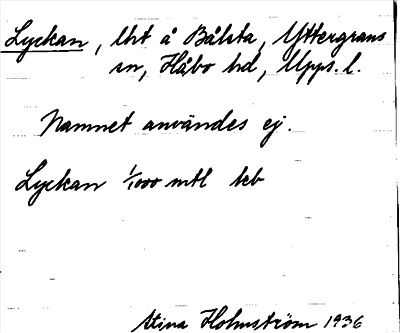 Lyckan, lht å Bålsta, Yttergrans
sn, Håbo hd, Upps. l.
Namnet användes ej.
Lyckan 1/1000 mtl kb
Stina Holmström 1936